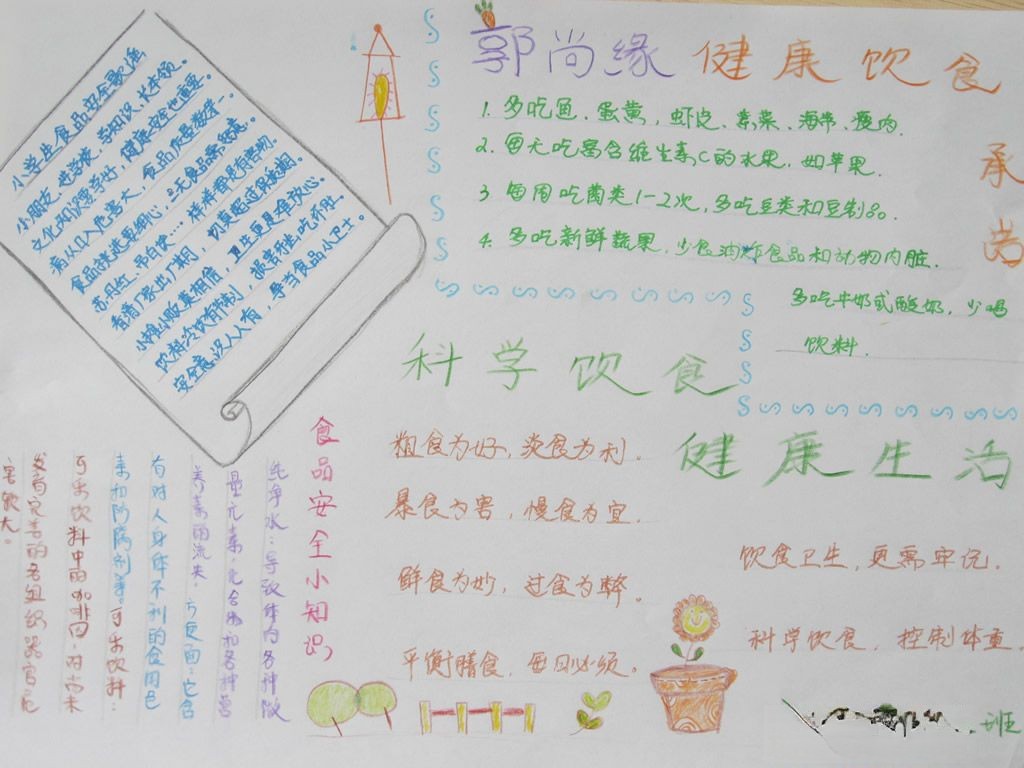 小学生食品安全歌谣
小朋友，进学校，学知识，长本领。
文化知识要学好，健康安全也重要。
病从口入危害大，食品健康数第一。
食品挑选要细心，三无食品需留意。
苏丹红、吊白块……样样都是有害物。
看清厂家出厂期，切莫超过保质期。
小摊小贩莫相信，卫生更是难放心。
饮料冷饮有节制，损害牙齿吃坏肚。
安全意识人人有，争当食品小卫士。
郭尚缘 健康饮食
1. 多吃鱼、蛋黄、虾皮、紫菜、海带、瘦肉.
2. 每天吃富含维生素C的水果，如苹果.
3. 每周吃菌类1-2次，多吃豆类和豆制品.
4. 多吃新鲜蔬果，少食油炸食品和动物内脏.
多吃牛奶或酸奶，少喝
饮料.
承
尚
科学饮食
粗食为好，淡食为利.
暴食为害，慢食为宜.
鲜食为妙，过食为弊.
平衡膳食，每日必须。
健康生活
饮食卫生，更需牢记.
科学饮食，控制体重.
班
食品安全小知识
纯净水：导致体内各种微
量元素，化合物和各种营
养素的流失。
方便面：它含
有对人身体不利的食用色
素和防腐剂等。可乐饮料：
可乐饮料中的咖啡因，对尚未
发育完善的各组织器官危
害較大。